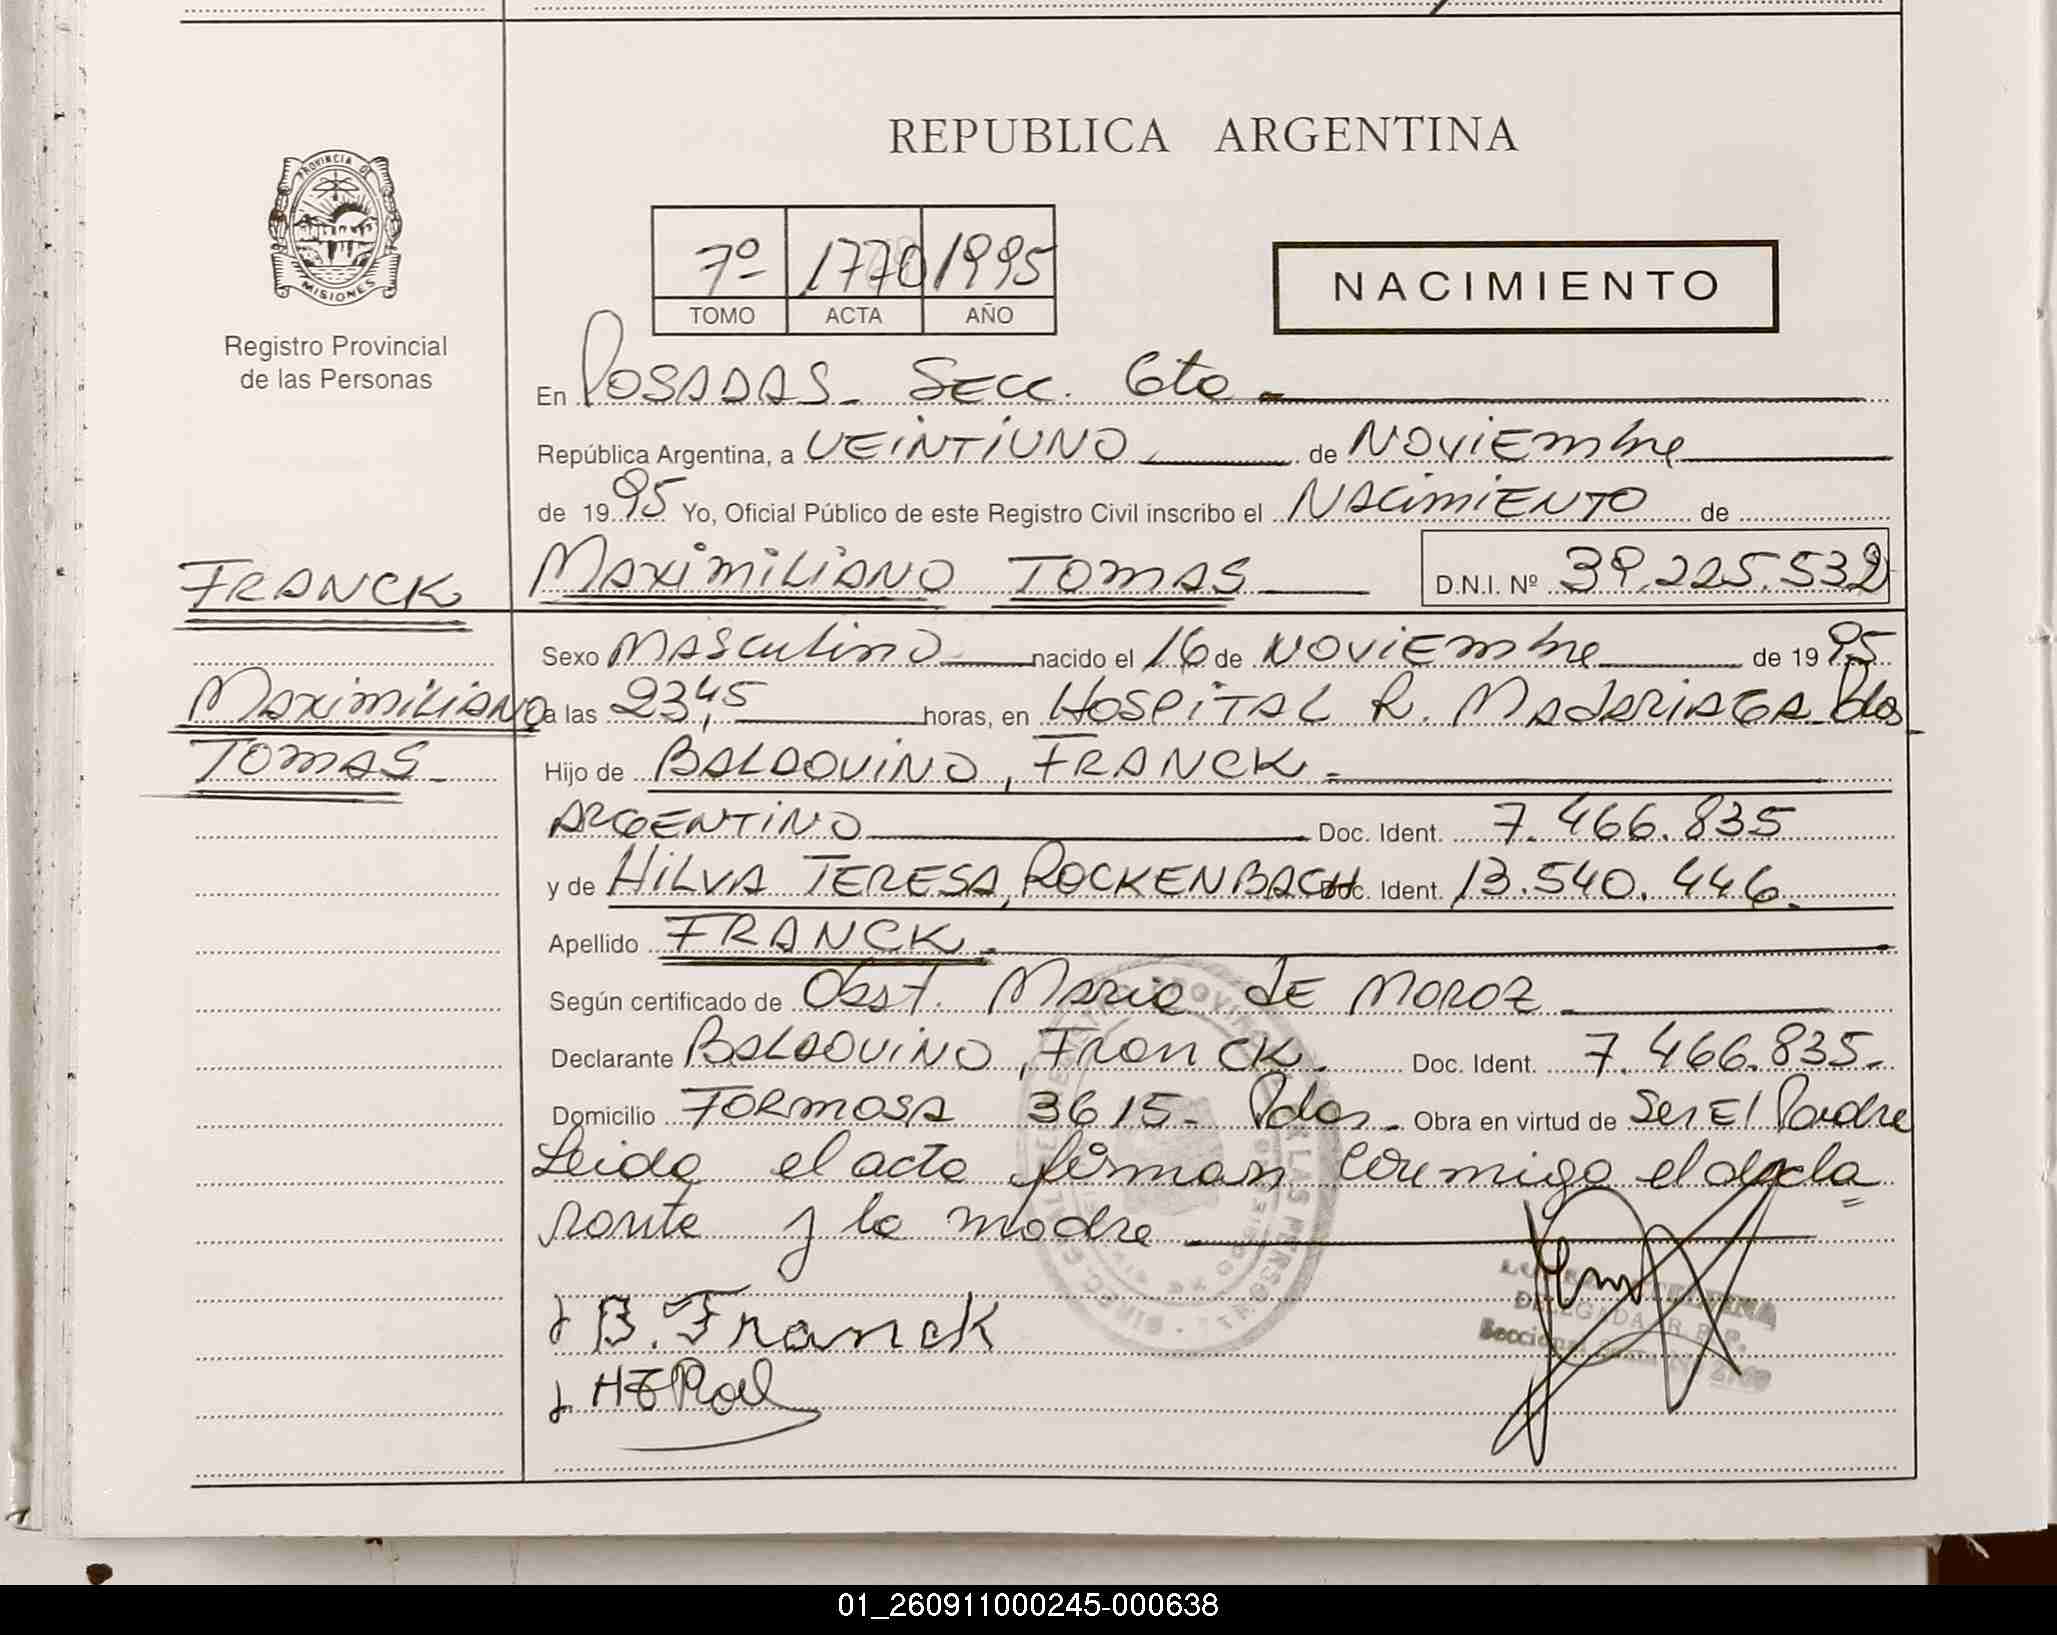 REPUBLICA ARGENTINA
PROVINCIA DE
MISIONES
Registro Provincial
de las Personas
7º 1770 1995
TOMO ACTA AÑO
NACIMIENTO
En POSADAS - SECC. 6ta -
República Argentina, a VEINTIUNO de NOVIEMbre
de 19 95 Yo, Oficial Público de este Registro Civil inscribo el NACIMIENTO de
FRANCK MAXIMILIANO TOMAS D.N.I. Nº 39.225.532
Sexo MASCULINO nacido el 16 de NOVIEMbre de 19 95
MAXIMILIANO a las 23,45 horas, en HOSPITAL R. MADARIAGA Pdas
TOMAS - Hijo de BALDOUINO, FRANCK -
ARGENTINO Doc. Ident. 7.466.835
y de HILVA TERESA, ROCKENBACH Doc. Ident. 13.540.446.
Apellido FRANCK -
Según certificado de Obst. Maria de MOROZ
Declarante BALDOUINO, FranCK. Doc. Ident. 7.466.835-
Domicilio FORMOSA 3615- Pdas - Obra en virtud de Ser El Padre
Leida el acta firman conmigo el decla
rante y la madre
B. Franck